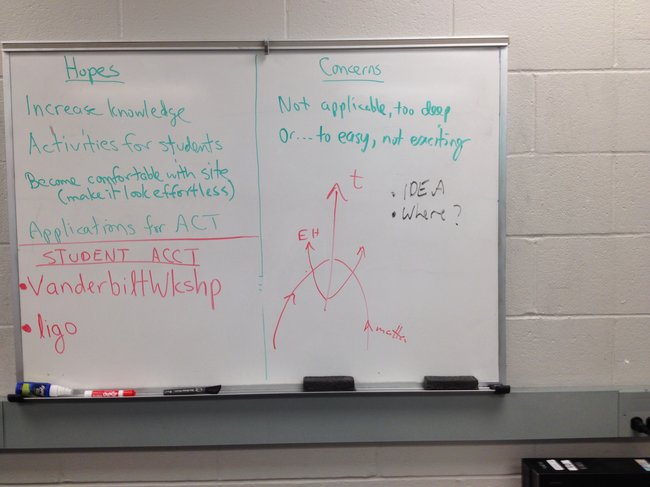 Hopes
Increase knowledge
Activities for students
Become comfortable with site
(make it look effortless)
Applications for ACT
STUDENT ACCT
• VanderbiltWkshp
• ligo
Concerns
Not applicable, too deep
Or... to easy, not exciting
t
EH
• IDEA
• Where?